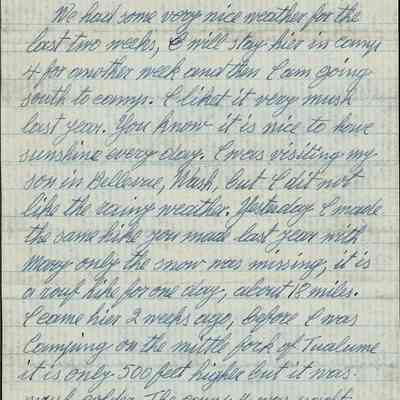 We had some very nice weather for the
last two weeks, I will stay hier in camp
4 for another week and then I am going
south to camp. I liket it very mush
last year. You know it is nice to have
sunshine every day. I was visiting my
son in Bellevue, Wash, but I dit not
like the rainy weather. Yesterday I made
the same hike you made last year with
Mary only the snow was missing, it is
a rouf hike for one day, about 18 miles.
I came hier 2 weeks ago, before I was
Camping on the mittle fork of Tualume
it is only 500 feet higher but it was
The